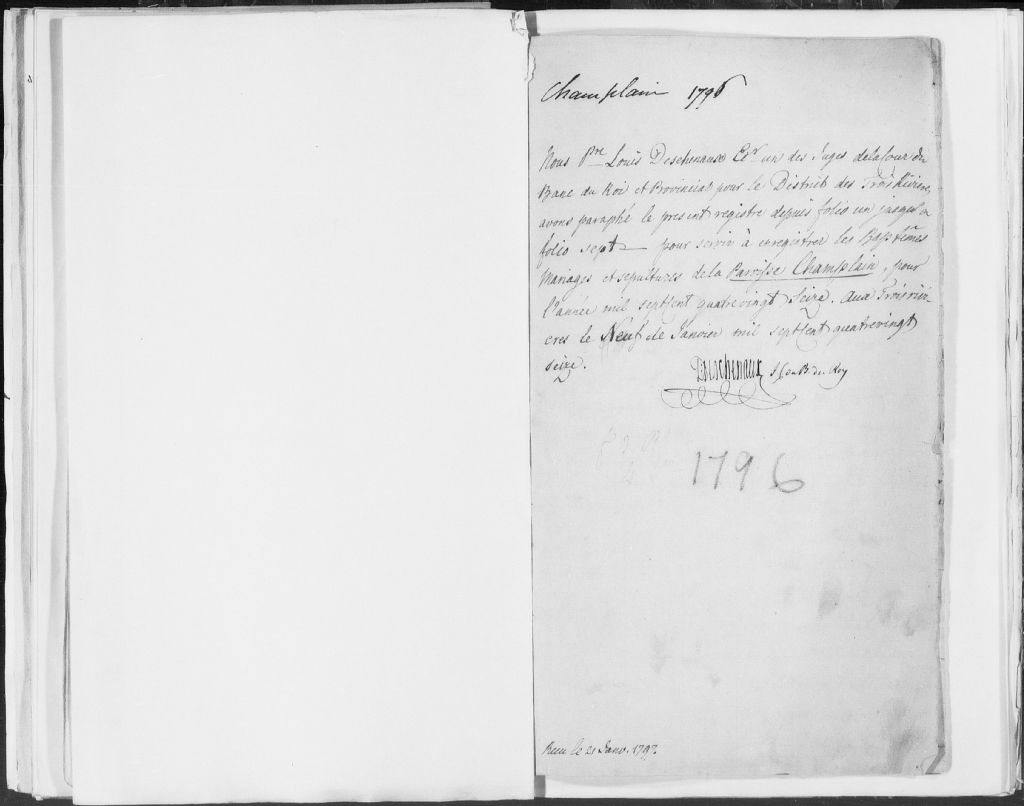 Champlain 1796
Nous Pre Louis Deschenaux Ecr un des Juges de la Cour du
Banc du Roi et Provincial pour le District des Trois Rivieres,
avons paraphé le present registre depuis folio un jusqu'a
folio sept — pour servir à enregistrer les Baptêmes
Mariages et sepultures de la Paroisse Champlain, pour
l'année mil septcent quatrevingt Seize. Aux Troisrivi-
eres le Neuf de Janvier mil septcent quatrevingt
seize.
Deschenaux J C du B. du Roy
1796
Recu le 21 Janv. 1797.